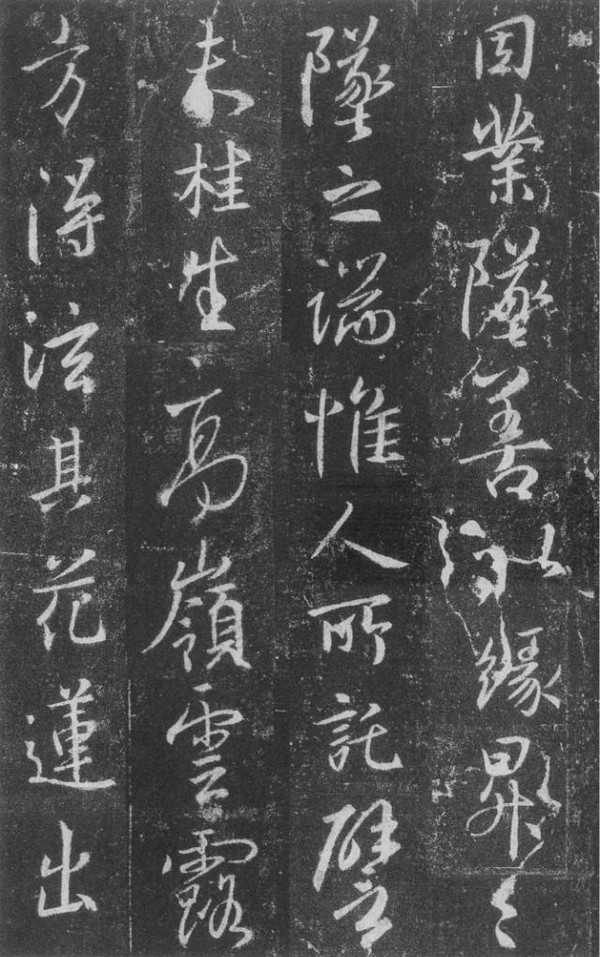 因業墜善以緣昇々
墜之端惟人所託譬
夫桂生高嶺雲露
方得泫其花蓮出